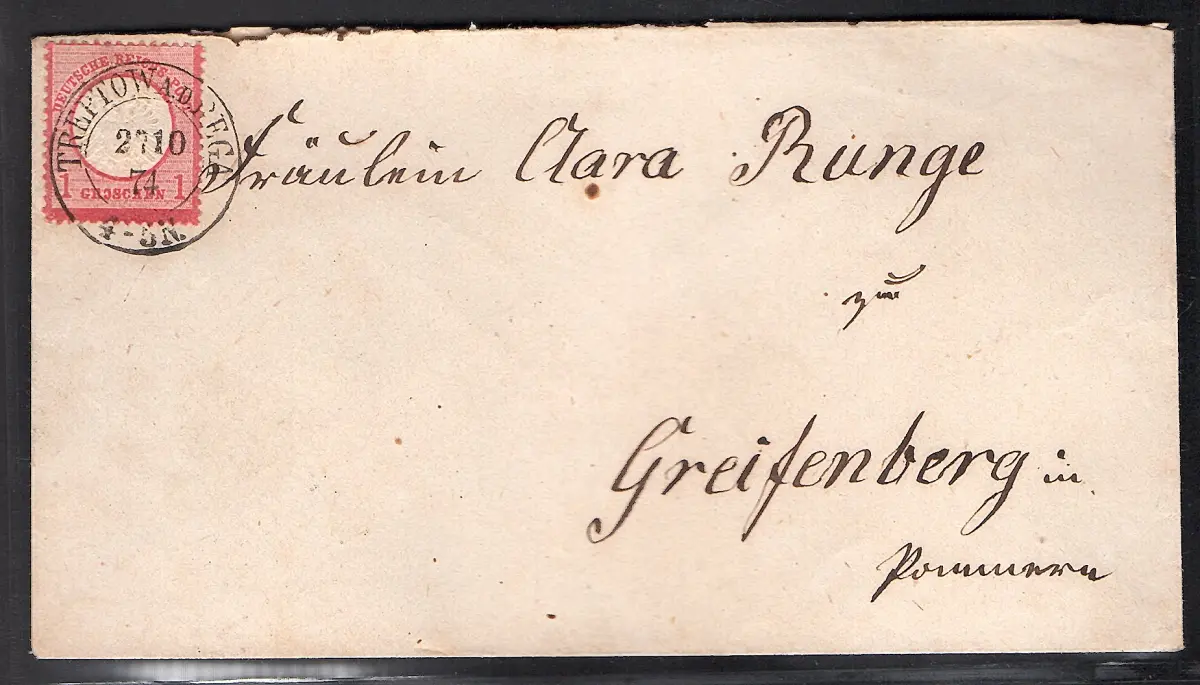 DEUTSCHE REICHS-PO
1 GROSCHEN 1
TREPTOW A.D.REGA
10
74
4-5N.
Fräulein Clara Runge
zu
Greifenberg in
Pommern